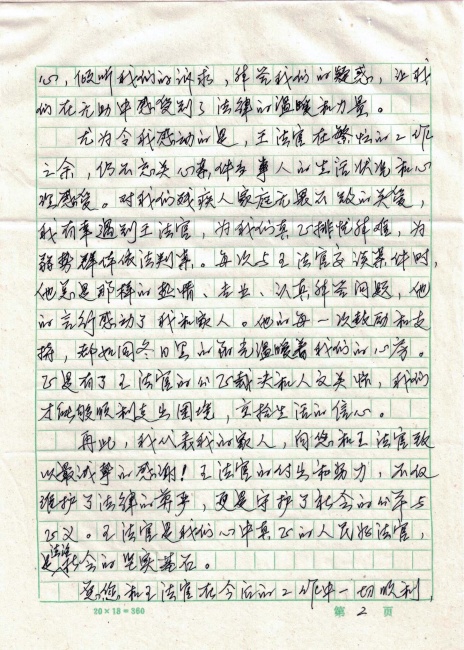 心，倾听我们的诉求，解答我们的疑惑，让我
们在无助中感受到了法律的温暖和力量。
尤为令我感动的是，王法官在繁忙的工作
之余，仍不忘关心案件当事人的生活状况和心
理感受。对我们残疾人家庭无微不至的关爱，
我有幸遇到王法官，为我们真正排忧解难，为
弱势群体依法判案。每次与王法官交谈案件时，
他总是那样的热情、专业、认真解答问题，他
的言行感动了我和家人。他的每一次鼓励和支
持，都如同冬日里的阳光温暖着我们的心房。
正是有了王法官的公正裁决和人文关怀，我们
才能够顺利走出困境，重拾生活的信心。
再此，我代表我的家人，向您和王法官致
以最诚挚的感谢！王法官的付出和努力，不仅
维护了法律的尊严，更是守护了社会的公平与
正义。王法官是我们心中真正的人民好法官，
是法治社会的坚实基石。
愿您和王法官在今后的工作中一切顺利，
20×18=360
第 2 页